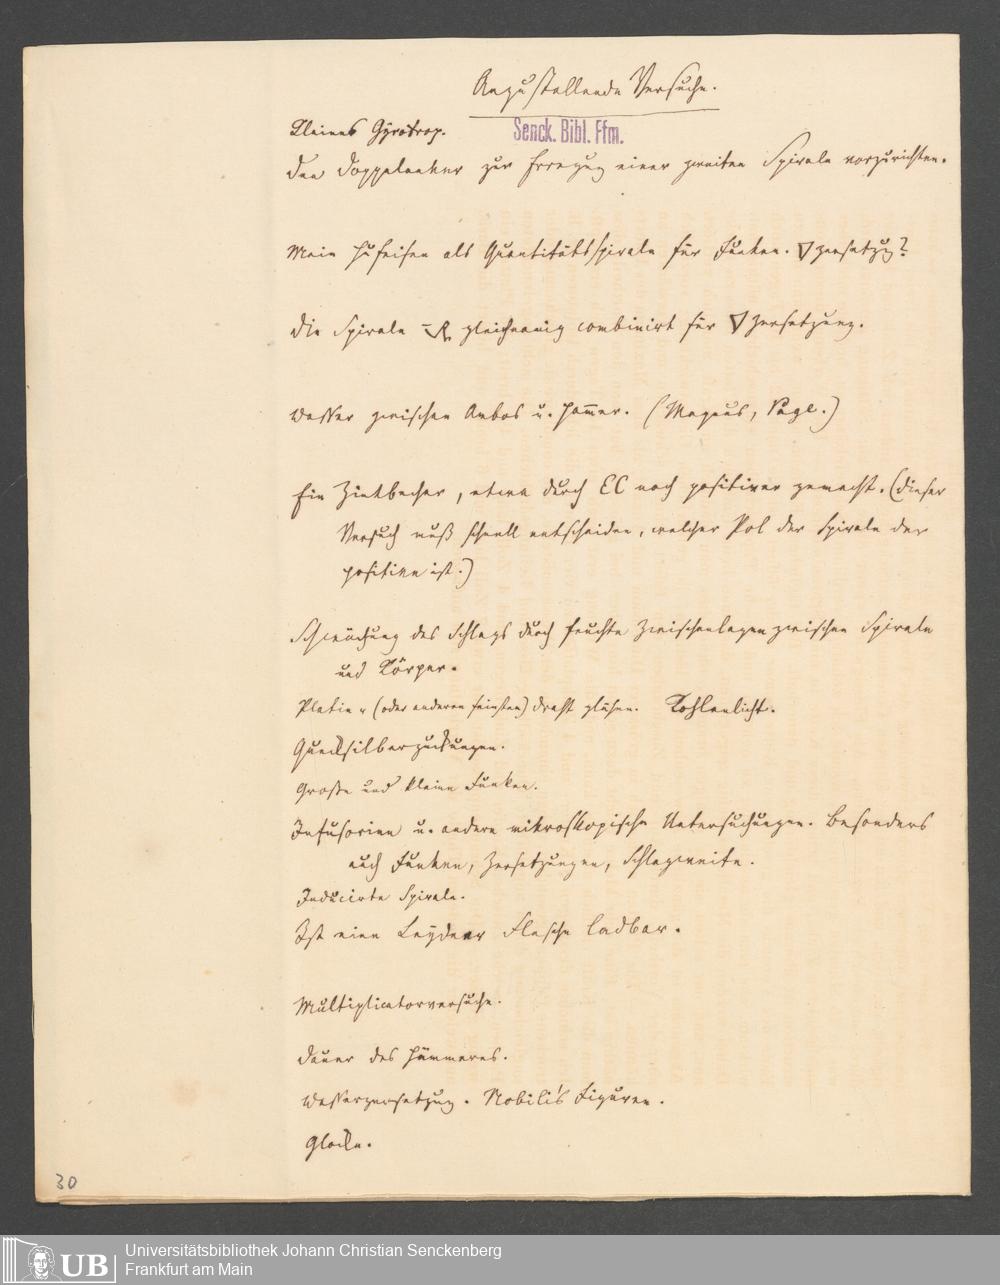 Anzustellende Versuche.
Kleines Gyrotrop.
Senck. Bibl. Ffm.
Den Doppelanker zur Erregug einer zweiten Spirale vorzurichten.
Mein Hufeisen als Quantitätsspirale für Funken. ▽ zersetzug?
Die Spirale gleichnamig combinirt für ▽ Zersetzung.
Wasser zwischen Ambos u. Ham̅er. (Magnus, Pogg.)
Ein Zinkbecher, etwa durch EC noch positiver gemacht. (Dieser
Versuch muß schnell entscheiden, welcher Pol der Spirale der
positive ist.)
Schwächung des Schlags durch feuchte Zwischenlagen zwischen Spirale
und Körper.
Platin- (oder anderen feinsten) Draht glühen. Kohlenlicht.
Quecksilberzuckungen.
Große und kleine Funken.
Infusorien u. andere mikroskopische Untersuchungen. Besonders
auch Funken, Zersetzungen, Schlagweite.
Inducirte Spirale.
Ist eine Leydner Flasche ladbar.
Multiplicatorversuche.
Dauer des Hämmerns.
Wasserzersetzug. Nobili's Figuren.
Glocke.
30
UB
Universitätsbibliothek Johann Christian Senckenberg
Frankfurt am Main